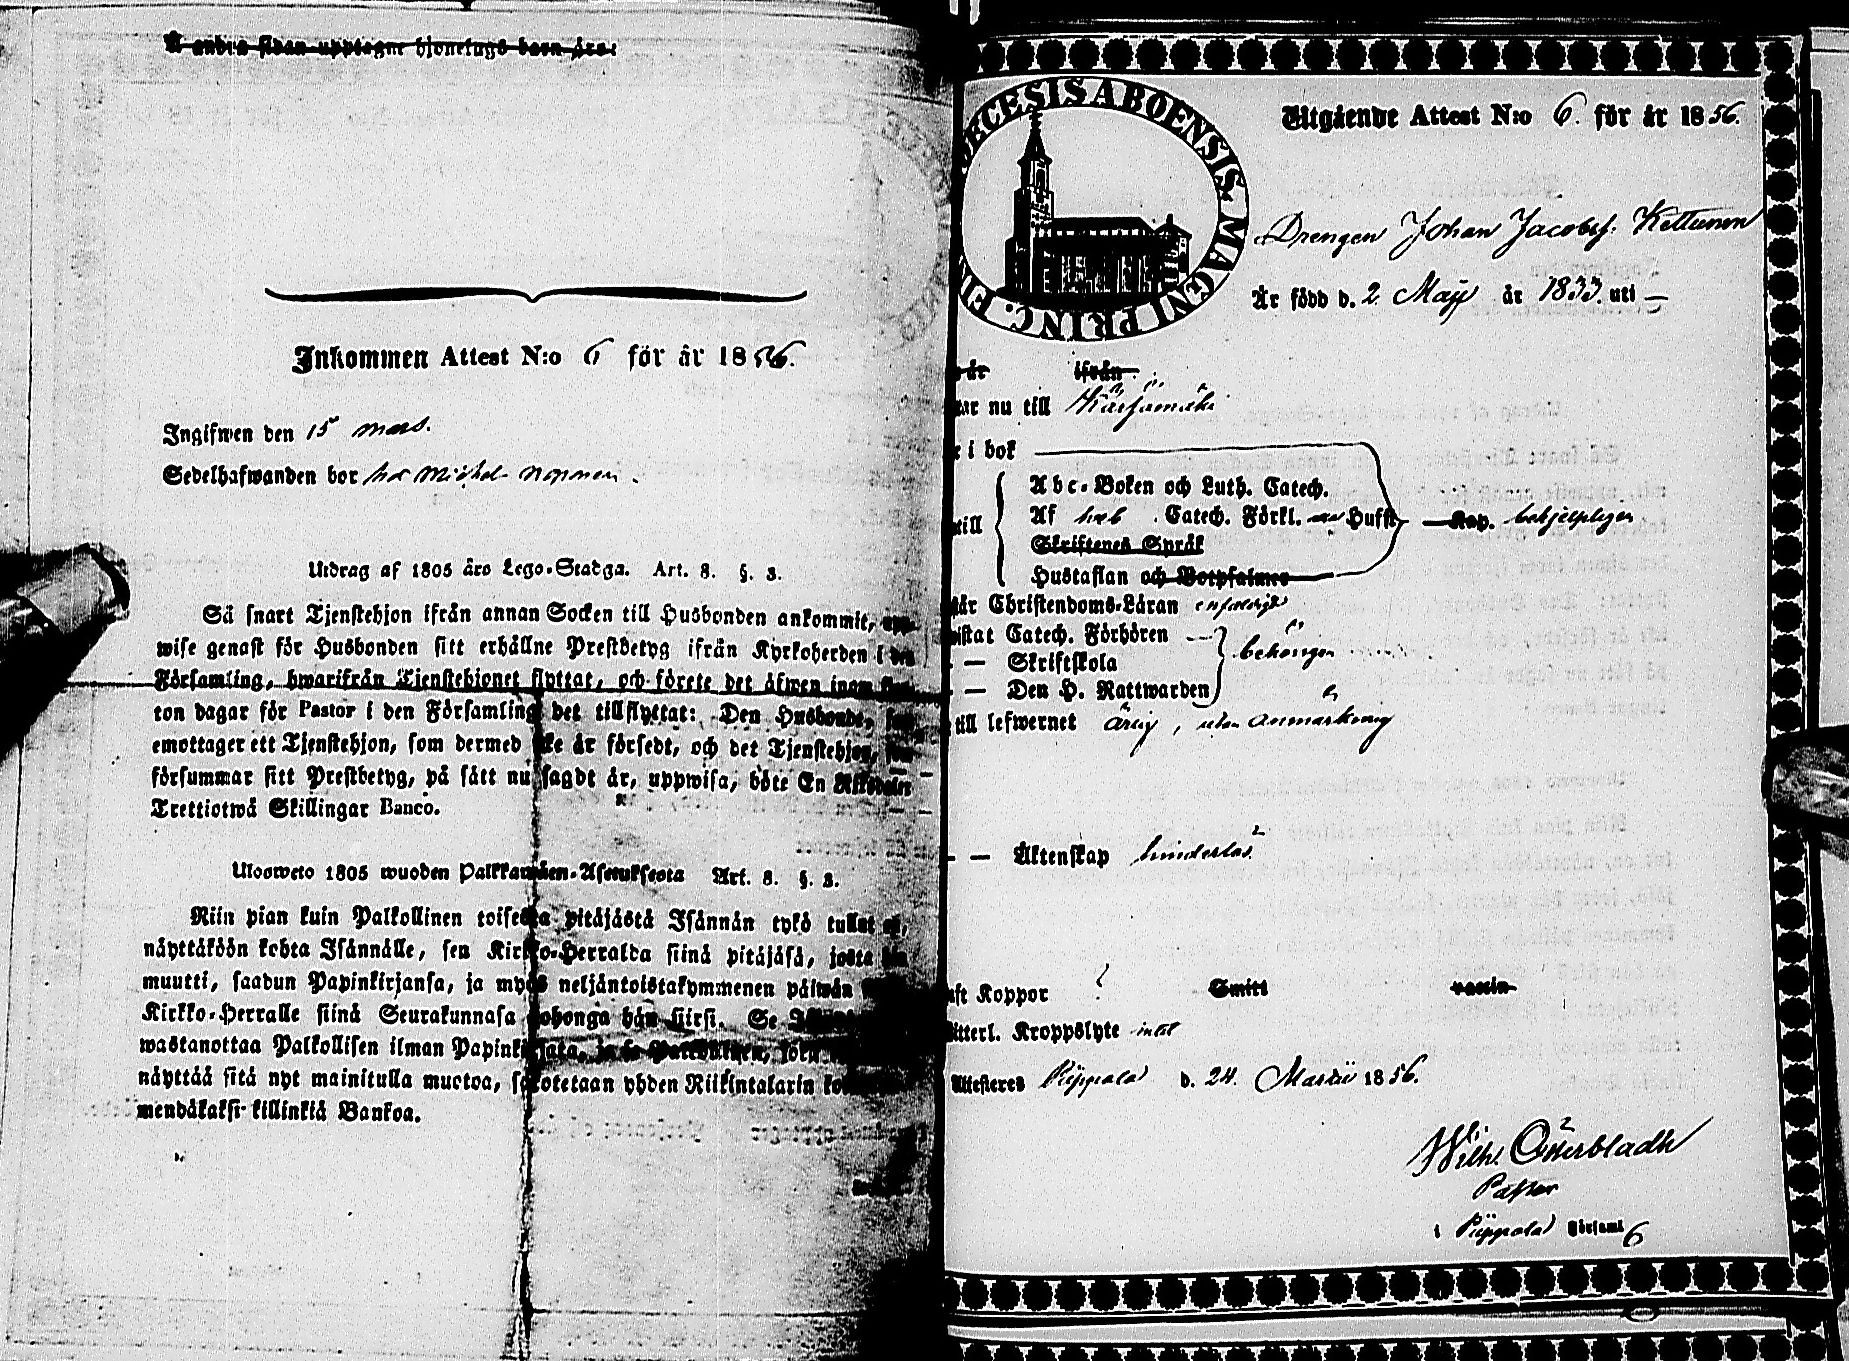 Å andra sidan upptagne hjonelags barn äro:
Inkommen Attest N:o 6 för år 1856.
Ingifwen den 15 mars.
Sedelhafwanden bor hos Michel
Utdrag af 1805 års Lego-Stadga. Art. 8. §. 3.
Så snart Tjenstehjon ifrån annan Socken till Husbonden ankommit, upp-
wise genast för Husbonden sitt erhållne Prestbetyg ifrån Kyrkoherden i den
Församling, hwarifrån Tjenstehjonet flyttat, och förete det äfwen inom fjor-
ton dagar för Pastor i den Församling det tillflyttat: Den Husbonde, som
emottager ett Tjenstehjon, som dermed icke är försedt, och det Tjenstehjon, som
försummar sitt Prestbetyg, på sätt nu sagdt är, uppwisa, böte En Riksdaler
Trettiotwå Skillingar Banco.
Ulosweto 1805 wuoden Palkkawäen-Asetuksesta Art. 8. §. 3.
Niin pian kuin Palkollinen toisesta pitäjästä Isännän tykö tullut on,
näyttäköön kohta Isännälle, sen Kirkko-Herralda siinä pitäjäsä, josta hän
muutti, saadun Papinkirjansa, ja myös neljäntoistakymmenen päiwän
Kirkko-Herralle siinä Seurakunnasa johonga hän siirsi. Se Isändä
wastanottaa Palkollisen ilman Papinkirjata, ja se Palkollinen, joka
näyttää sitä nyt mainitulla muotoa, sakotetaan yhden Riikintalarin
mendäkaksi killinkiä Bankoa.
DIOECESIS ABOENSIS MAGNI PRINC. FIN
Utgående Attest N:o 6. för år 1856.
Drengen Johan Jacobss. Kettunen
Är född d. 2 Maji år 1833. uti —
år ifrån
tar nu till Kärsämäki
r i bok
Abc-Boken och Luth. Catech.
till Af hel. Catech. Förkl. Hufft. Kap. behjelpligen
Skriftenes Språk
Hustaflan och Botpsalmer
står Christendoms-Läran enfaldigt
wistat Catech. Förhören
— Skriftskola behörigen
— Den H. Nattwarden
till lefwernet ärlig, utan anmärkning
— — Äktenskap hinderlös
aft Koppor ? Smitt vaccin
Ytterl. Kroppslyte intet
Attesteres Piippola d. 24. Martii 1856.
Wilh. Österbladh
Pastor
i Piippola Församl.
6